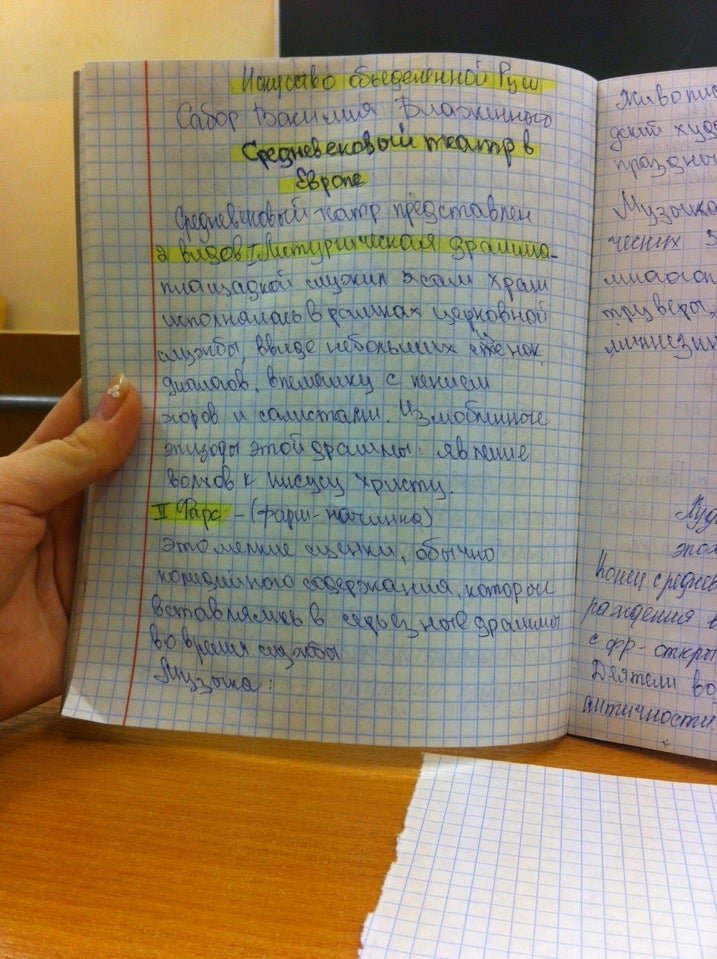 Искусство объеделенной Руси
Сабор Василия Блаженного
Средневековый театр в
Европе
Средневековый театр представлен
2 видов I Литургическая драмма-
площадкой служил а сам храм
исполнялась в рамках церковной
службы, ввиде небольших сценок,
диалогов, вперемешку с пением
хоров и салистами. Излюбленные
эпизоды этой драммы: явление
волхов к иисусу христу.
II Фарс - (фарш-начинка)
это мелкие сценки, обычно
комедийного содержания, которые
вставлялись в серьезные драммы
во время службы
Музыка:
Живопис
дский худо
праздны
Музыка
ческих з
многогол
труверы,
миннезин
эпох
Конец среднев
рождения в
с фр- откры
Деятели во
античности